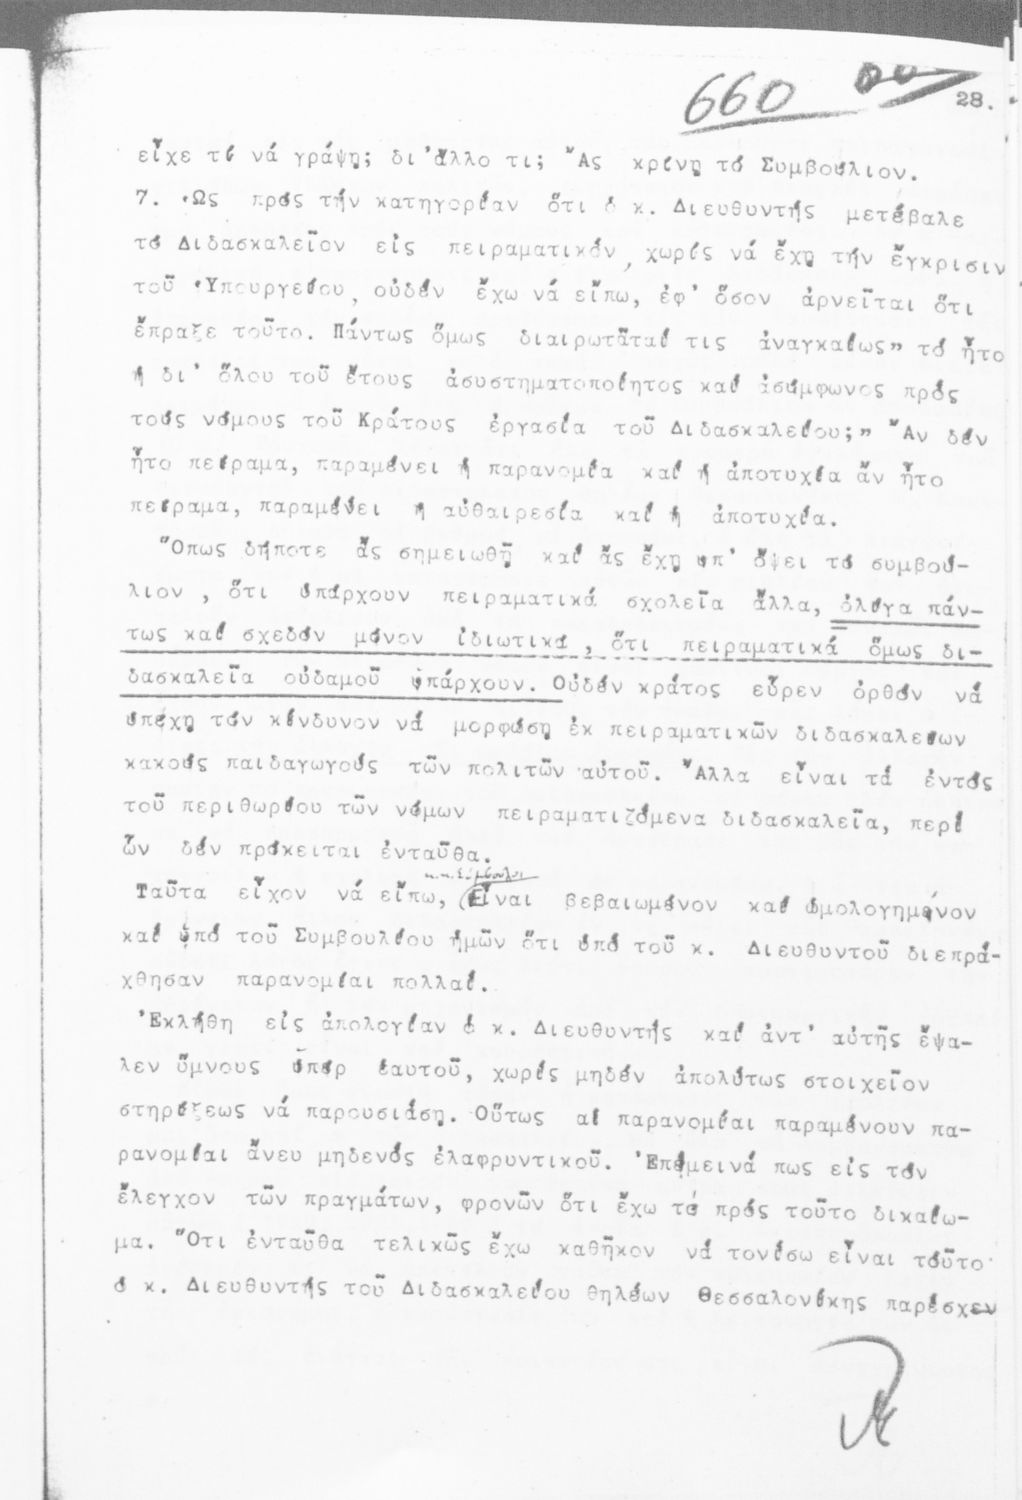 660
28.
εἶχε τί νά γράψῃ; δι'ἄλλο τι; Ἄς κρίνῃ τό Συμβούλιον.
7. Ὡς πρός τήν κατηγορίαν ὅτι ὁ κ. Διευθυντής μετέβαλε
τό Διδασκαλεῖον εἰς πειραματικόν, χωρίς νά ἔχῃ τήν ἔγκρισιν
τοῦ Ὑπουργείου, οὐδέν ἔχω νά εἴπω, ἐφ' ὅσον ἀρνεῖται ὅτι
ἔπραξε τοῦτο. Πάντως ὅμως διαιρωτᾶταί τις ἀναγκαίως" τό ἦτο
ἡ δι' ὅλου τοῦ ἔτους ἀσυστηματοποίητος καί ἀσύμφωνος πρός
τούς νόμους τοῦ Κράτους ἐργασία τοῦ Διδασκαλείου;" Ἄν δέν
ἦτο πείραμα, παραμένει ἡ παρανομία καί ἡ ἀποτυχία ἄν ἦτο
πείραμα, παραμένει ἡ αὐθαιρεσία καί ἡ ἀποτυχία.
Ὅπως δήποτε ἄς σημειωθῇ καί ἄς ἔχῃ ὑπ' ὄψει τό συμβού-
λιον, ὅτι ὑπάρχουν πειραματικά σχολεῖα ἄλλα, ὀλίγα πάν-
τως καί σχεδόν μόνον ἰδιωτικά, ὅτι πειραματικά ὅμως δι-
δασκαλεῖα οὐδαμοῦ ὑπάρχουν. Οὐδέν κράτος εὗρεν ὀρθόν νά
ὑπέχῃ τόν κίνδυνον νά μορφώσῃ ἐκ πειραματικῶν διδασκαλείων
κακούς παιδαγωγούς τῶν πολιτῶν αὐτοῦ. Ἄλλα εἶναι τά ἐντός
τοῦ περιθωρίου τῶν νόμων πειραματιζόμενα διδασκαλεῖα, περί
ὧν δέν πρόκειται ἐνταῦθα.
κ.κ. Σύμβουλοι
Ταῦτα εἶχον νά εἴπω, Εἶναι βεβαιωμένον καί ὡμολογημένον
καί ὑπό τοῦ Συμβουλίου ἡμῶν ὅτι ὑπό τοῦ κ. Διευθυντοῦ διεπρά-
χθησαν παρανομίαι πολλαί.
Ἐκλήθη εἰς ἀπολογίαν ὁ κ. Διευθυντής καί ἀντ' αὐτῆς ἔψα-
λεν ὕμνους ὑπέρ ἑαυτοῦ, χωρίς μηδέν ἀπολύτως στοιχεῖον
στηρίξεως νά παρουσιάσῃ. Οὕτως αἱ παρανομίαι παραμένουν πα-
ρανομίαι ἄνευ μηδενός ἐλαφρυντικοῦ. Ἐπέμεινά πως εἰς τόν
ἔλεγχον τῶν πραγμάτων, φρονῶν ὅτι ἔχω τό πρός τοῦτο δικαίω-
μα. Ὅτι ἐνταῦθα τελικῶς ἔχω καθῆκον νά τονίσω εἶναι τοῦτο·
ὁ κ. Διευθυντής τοῦ Διδασκαλείου θηλέων Θεσσαλονίκης παρέσχεν